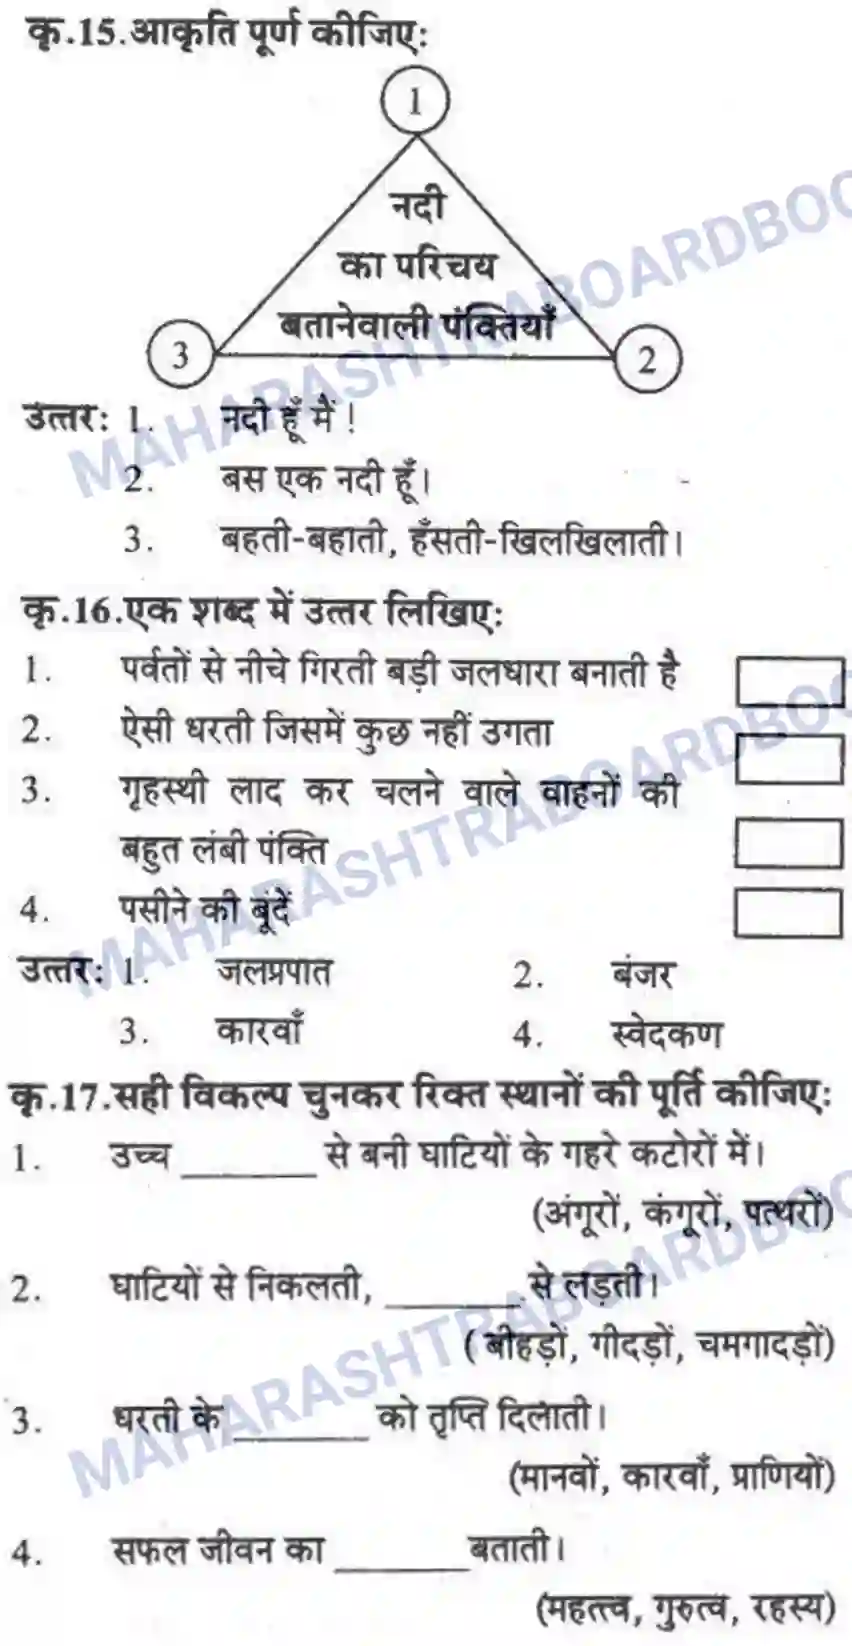 कृ.15.आकृति पूर्ण कीजिए:
1
नदी
का परिचय
बतानेवाली पंक्तियाँ
3
2
उत्तर: 1. नदी हूँ मैं !
2. बस एक नदी हूँ।
3. बहती-बहाती, हँसती-खिलखिलाती।
कृ.16.एक शब्द में उत्तर लिखिए:
1. पर्वतों से नीचे गिरती बड़ी जलधारा बनाती है
2. ऐसी धरती जिसमें कुछ नहीं उगता
3. गृहस्थी लाद कर चलने वाले वाहनों की
बहुत लंबी पंक्ति
4. पसीने की बूंदें
उत्तर: 1. जलप्रपात 2. बंजर
3. कारवाँ 4. स्वेदकण
कृ.17.सही विकल्प चुनकर रिक्त स्थानों की पूर्ति कीजिए:
1. उच्च ______ से बनी घाटियों के गहरे कटोरों में।
(अंगूरों, कंगूरों, पत्थरों)
2. घाटियों से निकलती, ______ से लड़ती।
( बीहड़ों, गीदड़ों, चमगादड़ों)
3. धरती के ______ को तृप्ति दिलाती।
(मानवों, कारवाँ, प्राणियों)
4. सफल जीवन का ______ बताती।
(महत्त्व, गुरुत्व, रहस्य)
MAHARASHTRABOARDBOO
MAHARASHTRABOARDBOO
MAHARASHTRABOARDBOO